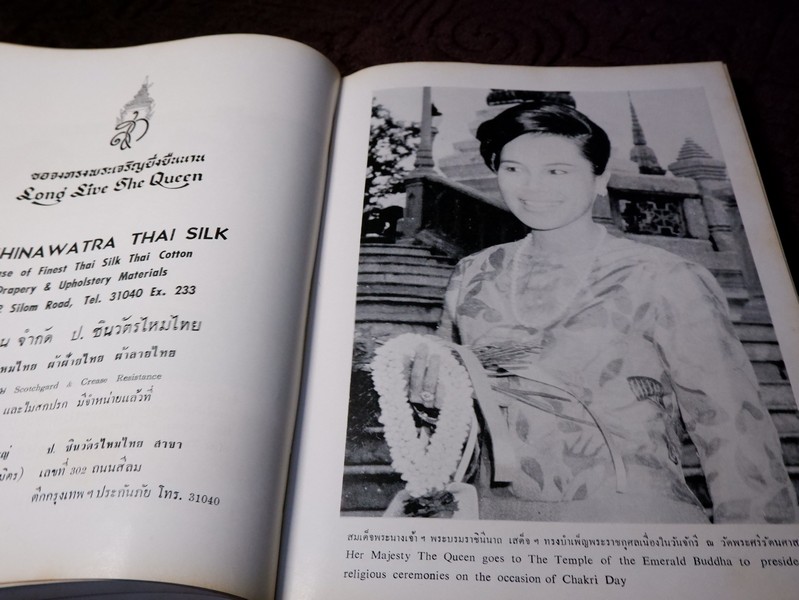 ขอจงทรงพระเจริญยิ่งยืนนาน
Long Live The Queen
HINAWATRA THAI SILK
se of Finest Thai Silk Thai Cotton
Drapery & Upholstery Materials
Silom Road, Tel. 31040 Ex. 233
น จำกัด ป. ชินวัตรไหมไทย
หมไทย ผ้าฝ้ายไทย ผ้าลายไทย
Scotchgard & Grease Resistance
และใบสกปรก มีจำหน่ายแล้วที่
ป. ชินวัตรไหมไทย สาขา
เลขที่ 302 ถนนสีลม
ตึกกรุงเทพฯประกันภัย โทร. 31040
สมเด็จพระนางเจ้า ฯ พระบรมราชินีนาถ เสด็จ ฯ ทรงบำเพ็ญพระราชกุศลเนื่องในวันจักรี ณ วัดพระศรีรัตนศาส
Her Majesty The Queen goes to The Temple of the Emerald Buddha to preside
religious ceremonies on the occasion of Chakri Day